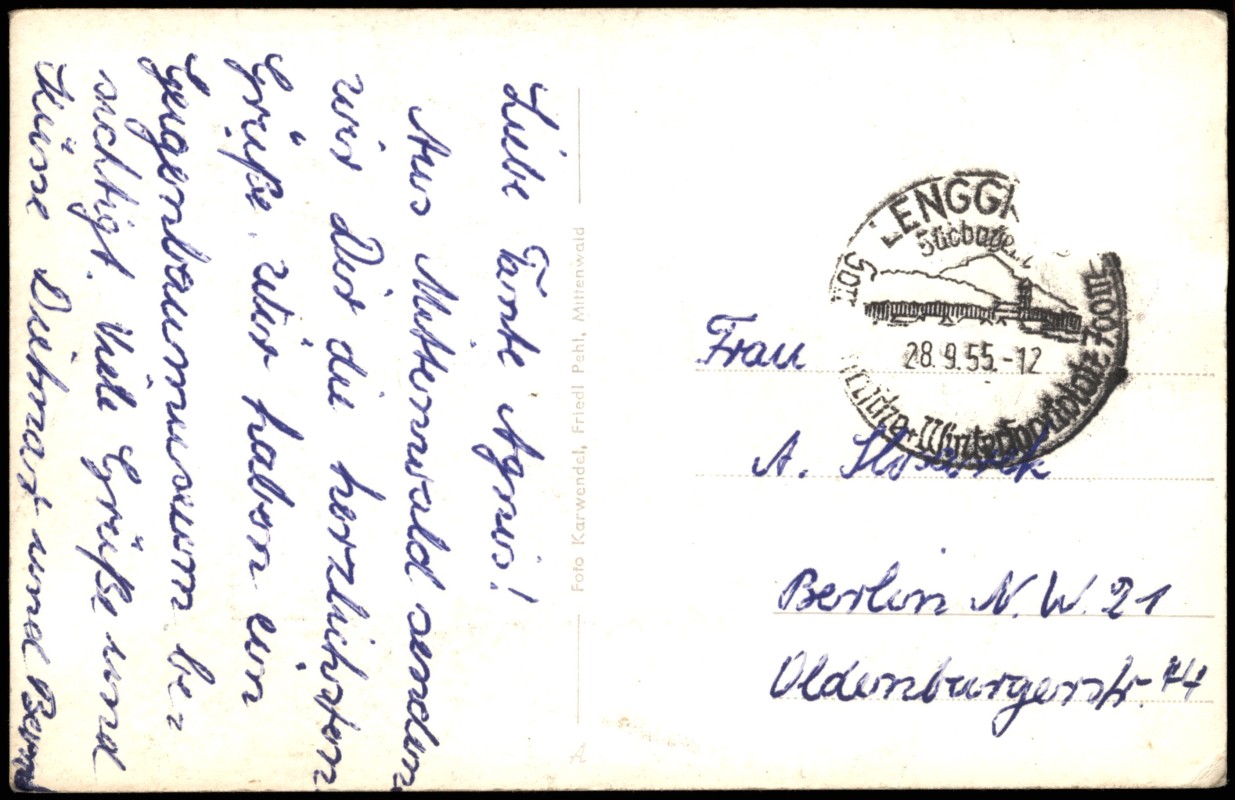 Liebe Tante Agnes!
Aus Mittenwald senden
wir Dir die herzlichsten
Grüße. Wir haben ein
Geigenbaumuseum be=
sichtigt. Viele Grüße und
Küsse Dietmar und Bernd
Foto Karwendel, Friedl Pehl, Mittenwald
LENGGR
Südbaye
Som
28.9.55.-12
Wintersportplatz 700m
Frau
A.
Berlin N.W. 21
Oldenburgerstr. 44